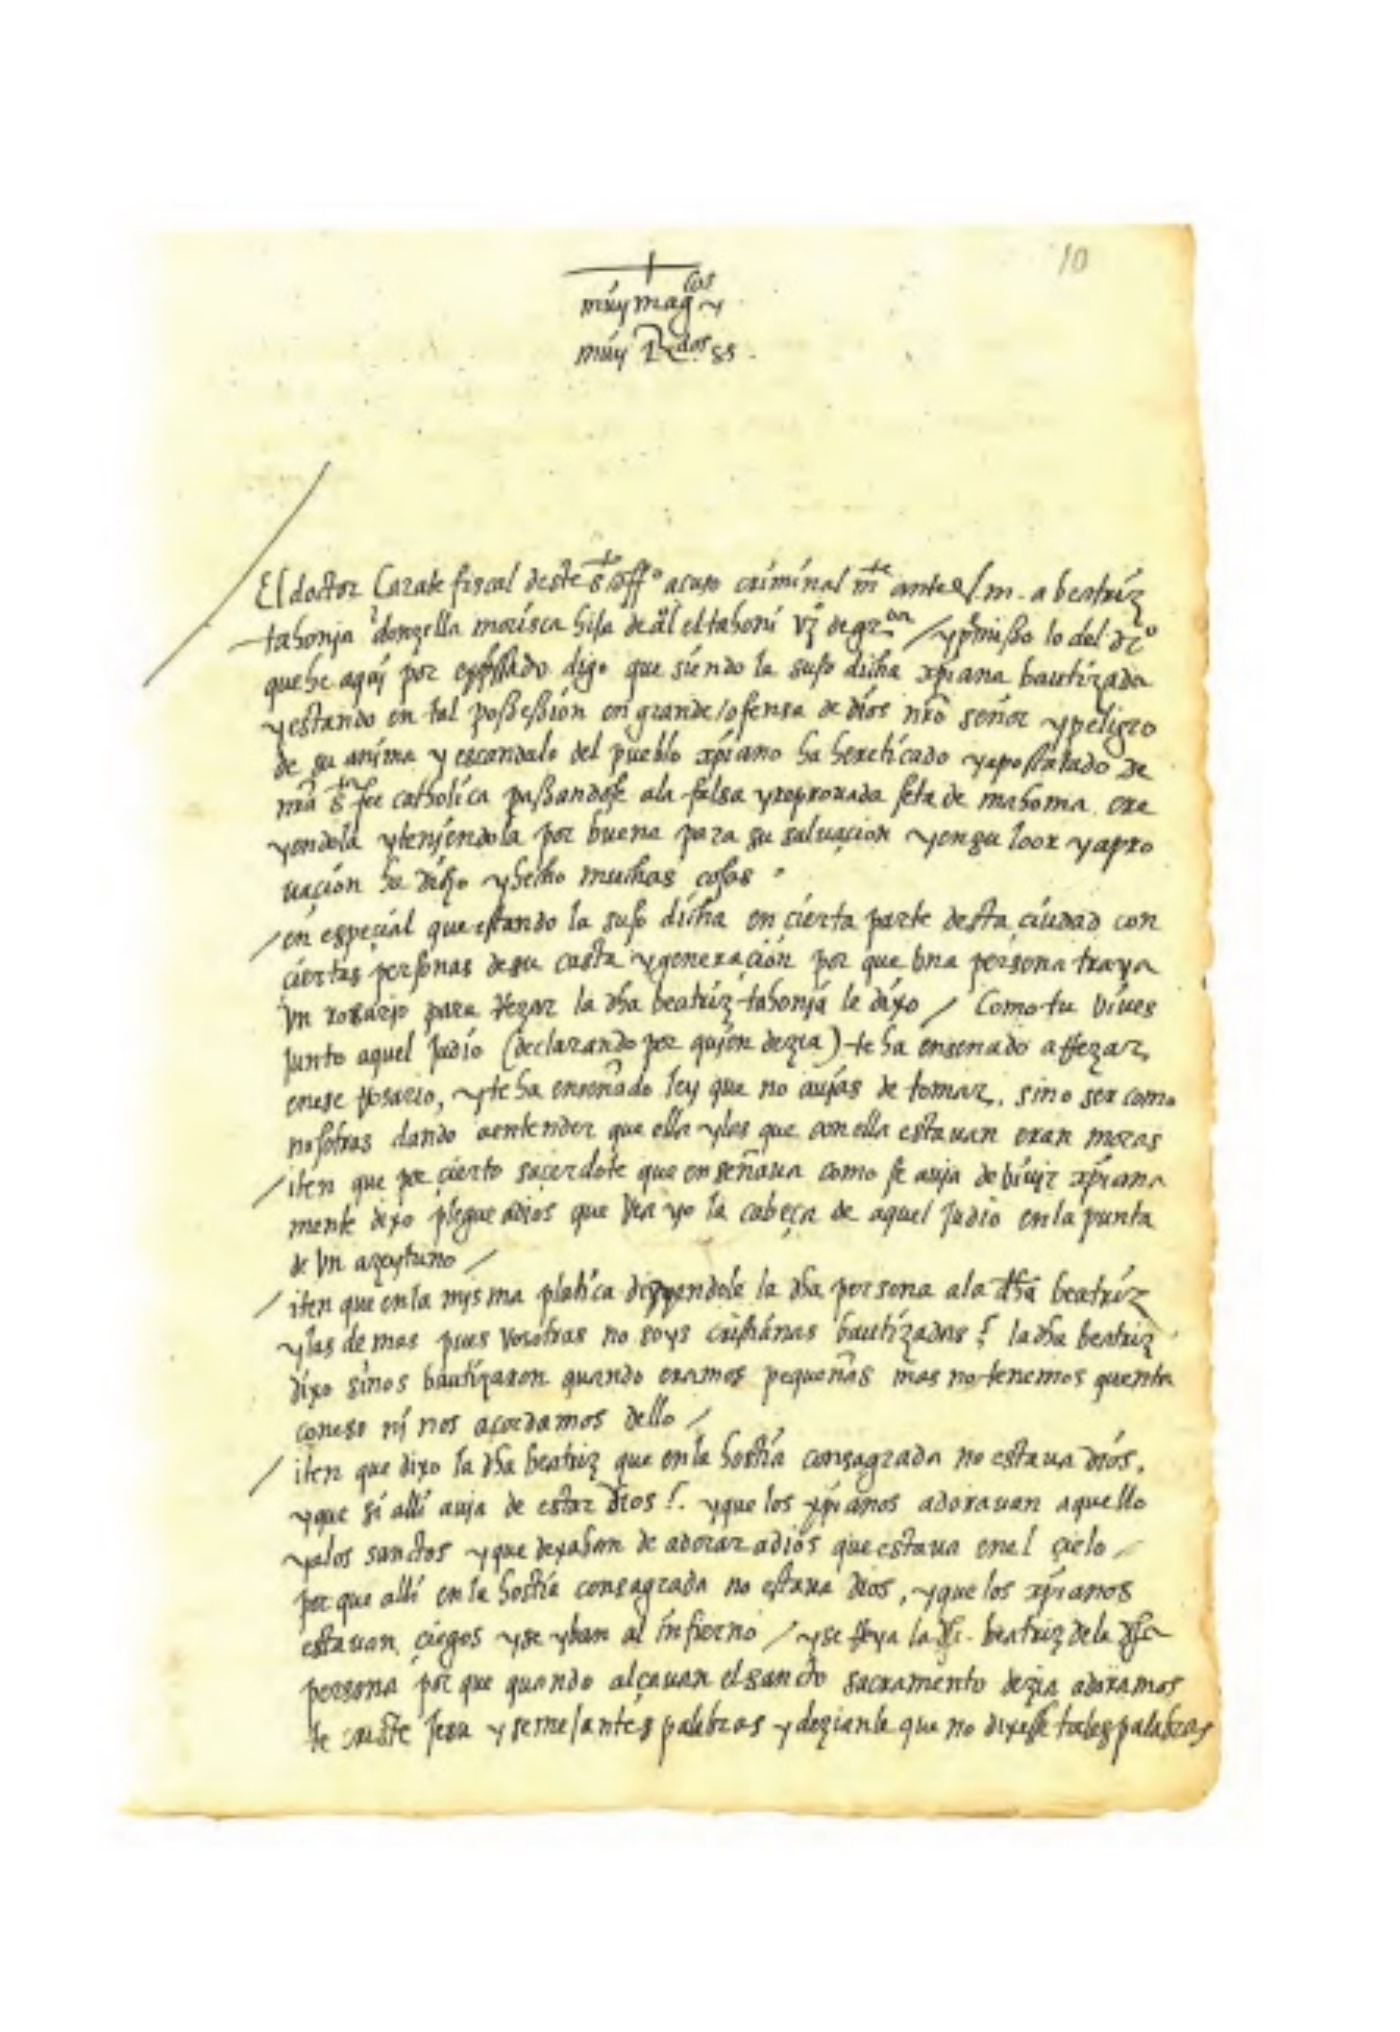 10
muy magcos y
muy Rdos ss.
El doctor Carate fiscal deste sto offo acuso criminal mte ante v. m. a beatriz
tahonia donzella morisca hija de al el tahoni vzo de gron / y pmisso lo del dro
que he aqui por expssado digo que siendo la suso dicha xpiana bautizada
y estando en tal possession en grande ofensa de dios nro señor y peligro
de su anima y escandalo del pueblo xpiano ha hereticado y apostatado de
nra sta fee catholica passandose a la falsa y reprouada seta de mahoma cre
yendola y teniendola por buena para su saluaçion y en su loor y apro
uaçion ha dicho y hecho muchas cosas
/ en espeçial que estando la suso dicha en çierta parte desta çiudad con
çiertas personas de su casta y generaçion por que vna persona traya
vn rosario para rezar la dha beatriz tahonia le dixo / Como tu viues
junto aquel judio (declarando por quien dezia) te ha ensenado a rrezar,
en ese rosario, y te ha enseñado ley que no auias de tomar, sino ser como
nosotras dando a entender que ella y las que con ella estauan eran moras
/ iten que por çierto saçerdote que enseñaua como se auia de biuir xpiana
mente dixo plegue a dios que vea yo la cabeça de aquel judio en la punta
de vn azeytuno /
/ iten que en la misma platica diziendole la dha persona a la dha beatriz
y las demas pues vosotras no soys cristianas bautizadas? la dha beatriz
dixo si nos bautizaron quando eramos pequeñas mas no tenemos quenta
con eso ni nos acordamos dello /
/ iten que dixo la dha beatriz que en la hostia consagrada no estaua dios,
y que si alli auia de estar Dios?. y que los xpianos adorauan aquello
y a los sanctos y que dexaban de adorar a dios que estaua en el çielo /
por que alli en la hostia consagrada no estaua dios, y que los xpianos
estauan çiegos y se yban al infierno / y se rreya la dha. beatriz de la dha
persona por que quando alçauan el sancto sacramento dezia adoramos
te criste Jesu y semejantes palabras y dezianle que no dixesse tales palabras